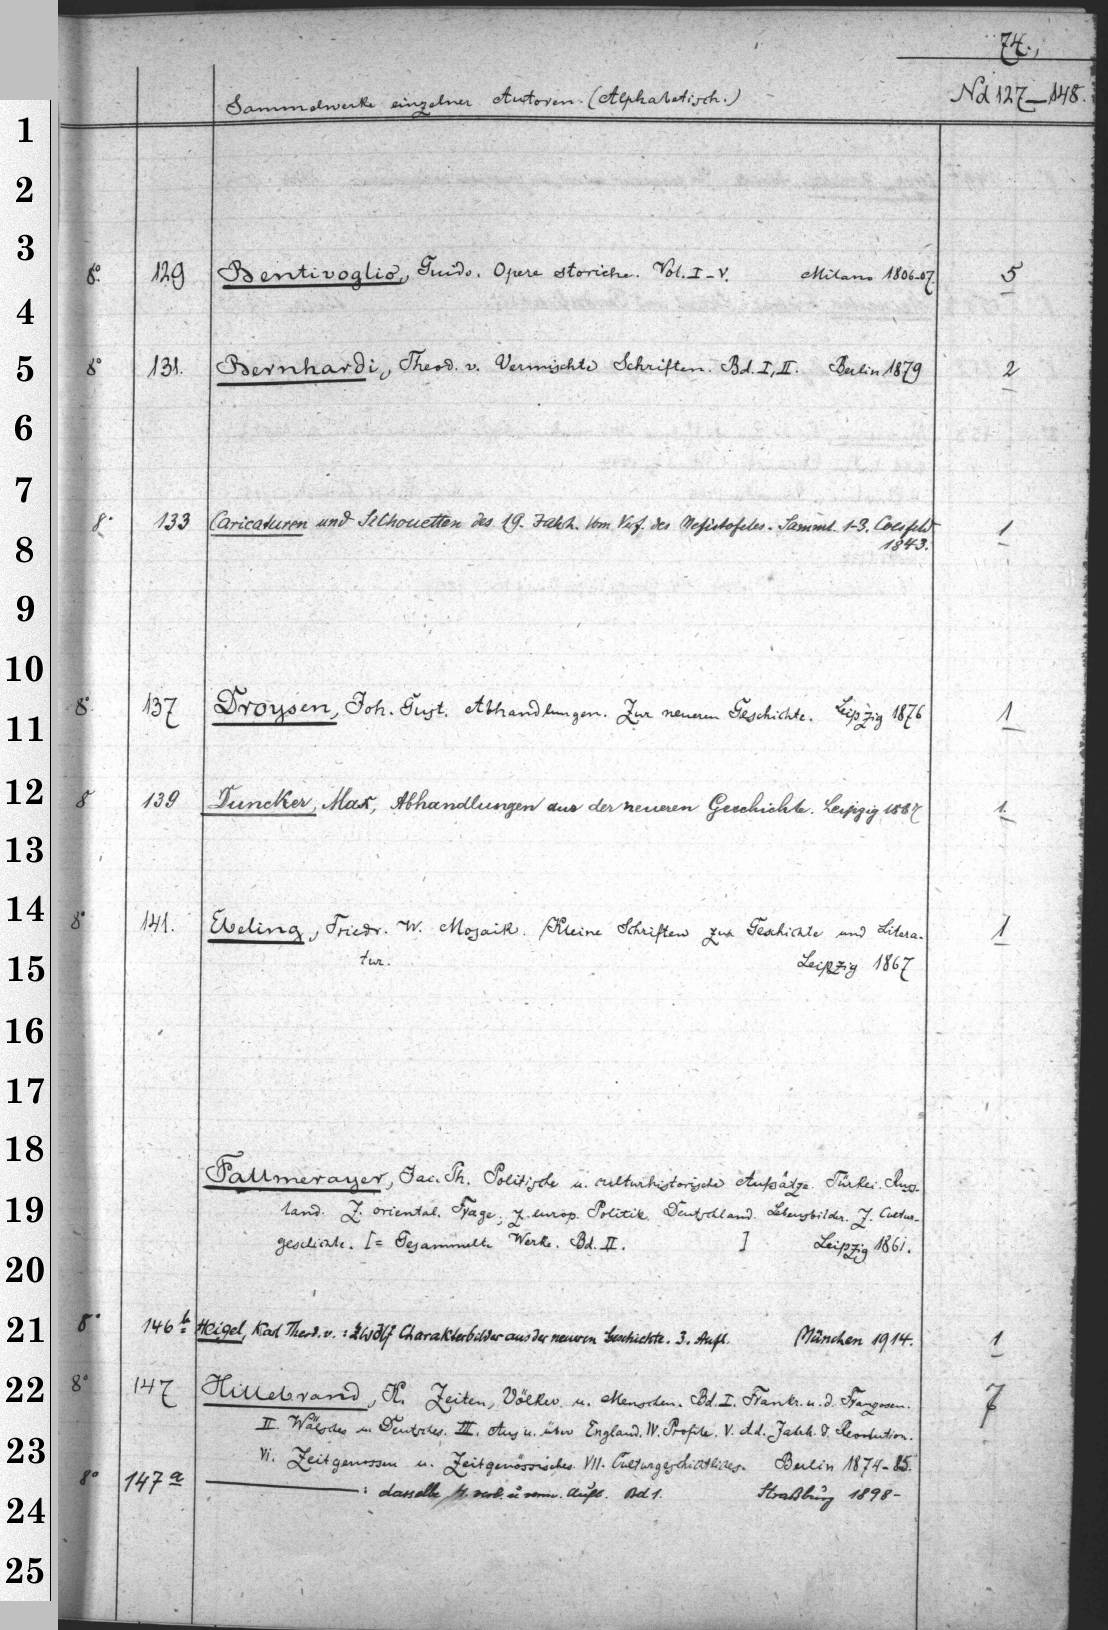 74.,
Sammelwerke einzelner Autoren. (Alphabetisch.) Nd 127–148.
1
2
3
8° 129 Bentivoglio, Guido. Opere storiche. Vol. I–V. Milano 1806–07. 5
4
5 8° 131. Bernhardi, Theod. v. Vermischte Schriften. Bd. I, II. Berlin 1879 2
6
7
8° 133 Caricaturen und Silhouetten des 19. Jahrh. Vom Verf. des Mefistofeles. Samml. 1-3. Coesfeld 1
8 1843.
9
10
8° 137 Droysen, Joh. Gust. Abhandlungen. Zur neueren Geschichte. Leipzig 1876 1
11
12 8° 139 Duncker, Max, Abhandlungen aus der neueren Geschichte. Leipzig 1887 1.
13
14 8° 141. Ebeling, Friedr. W. Mosaik. Kleine Schriften zur Geschichte und Litera- 1
15 tur. Leipzig 1867
16
17
18
Fallmerayer, Jac. Th. Politische u. culturhistorische Aufsätze. Türkei. Russ-
19 land. Z. oriental. Frage; z. europ. Politik. Deutschland. Lebensbilder. Z. Cultur-
geschichte. [= Gesammelte Werke. Bd. II. ] Leipzig 1861.
20
21 8° 146b Heigel, Karl Theod. v.: Zwölf Charakterbilder aus der neueren Geschichte. 3. Aufl. München 1914. 1
22 8° 147 Hillebrand, K. Zeiten, Völker u. Menschen. Bd. I. Frankr. u. d. Franzosen. 7
II Wälsches u. Deutsches. III. Aus u. über England. IV. Profile. V. A. d. Jahrh. d. Revolution.
23 VI. Zeitgenossen u. Zeitgenössisches. VII. Culturgeschichtliches. Berlin 1874–85.
8° 147a : dasselbe 4. verb. u. verm. Aufl. Bd 1. Straßburg 1898–
24
25